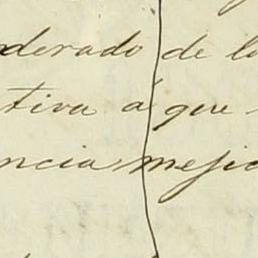 derado de lo
tiva á que
ncia mejic